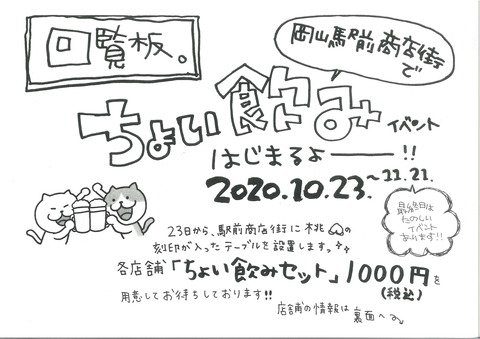 回覧板。
岡山駅前商店街
で
ちょい飲み イベント
はじまるよー!!
2020.10.23.~11.21.
最終日は
たのしい
イベント
あります!!
23日から、駅前商店街に桃の
刻印が入ったテーブルを設置します
各店舗「ちょい飲みセット」1000円を
(税込)
用意してお待ちしております!!
店舗の情報は裏面へ